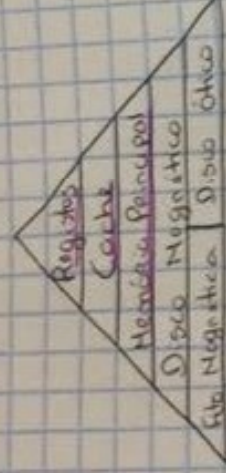 Registos
Cache
Memória Principal
Disco Magnético
Fita Magnética | Disco ótico